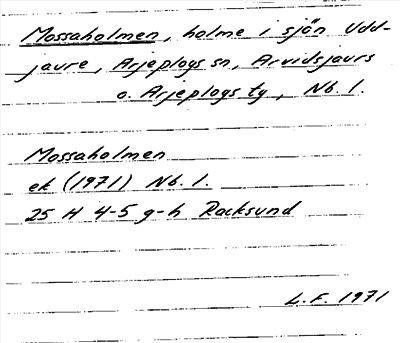 Mossaholmen, holme i sjön Udd-
jaure, Arjeplogs sn, Arvidsjaurs
o. Arjeplogs ty, Nb. l.
Mossaholmen
ek (1971) Nb. l.
25 H 4-5 g-h Racksund
L.F. 1971